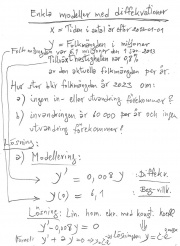 Enkla modeller med diffekvationer
x = Tiden i antal år efter 2013-01-01
y = Folkmängden i miljoner
Folkmängden var 6,1 miljoner den 1 jan 2013
Tillväxthastigheten var 0,8%
av den aktuella folkmängden per år.
Hur stor blir folkmängden år 2023 om:
a) ingen in- eller utvandring förekommer?
b) invandringen är 60 000 per år och ingen
utvandring förekommer?
Lösning:
a) Modellering:
y' = 0,008y Diffekv.
y(0) = 6,1 Beg. villk.
Lösning: Lin. hom. ekv. med konst. koeff.
y' - 0,008y = 0